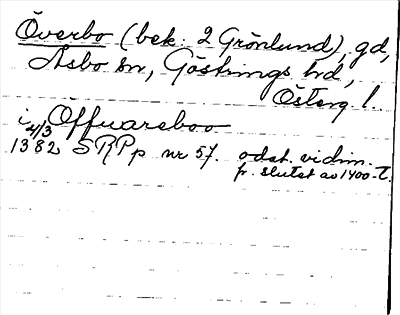 Överbo (bek. 2 Grönlund), gd,
Åsbo sn, Göstrings hd,
Österg l.
i Öffuareboo
4/3
1382 SRPp nr 57. odat. vidim.
fr. slutet av 1400-t.